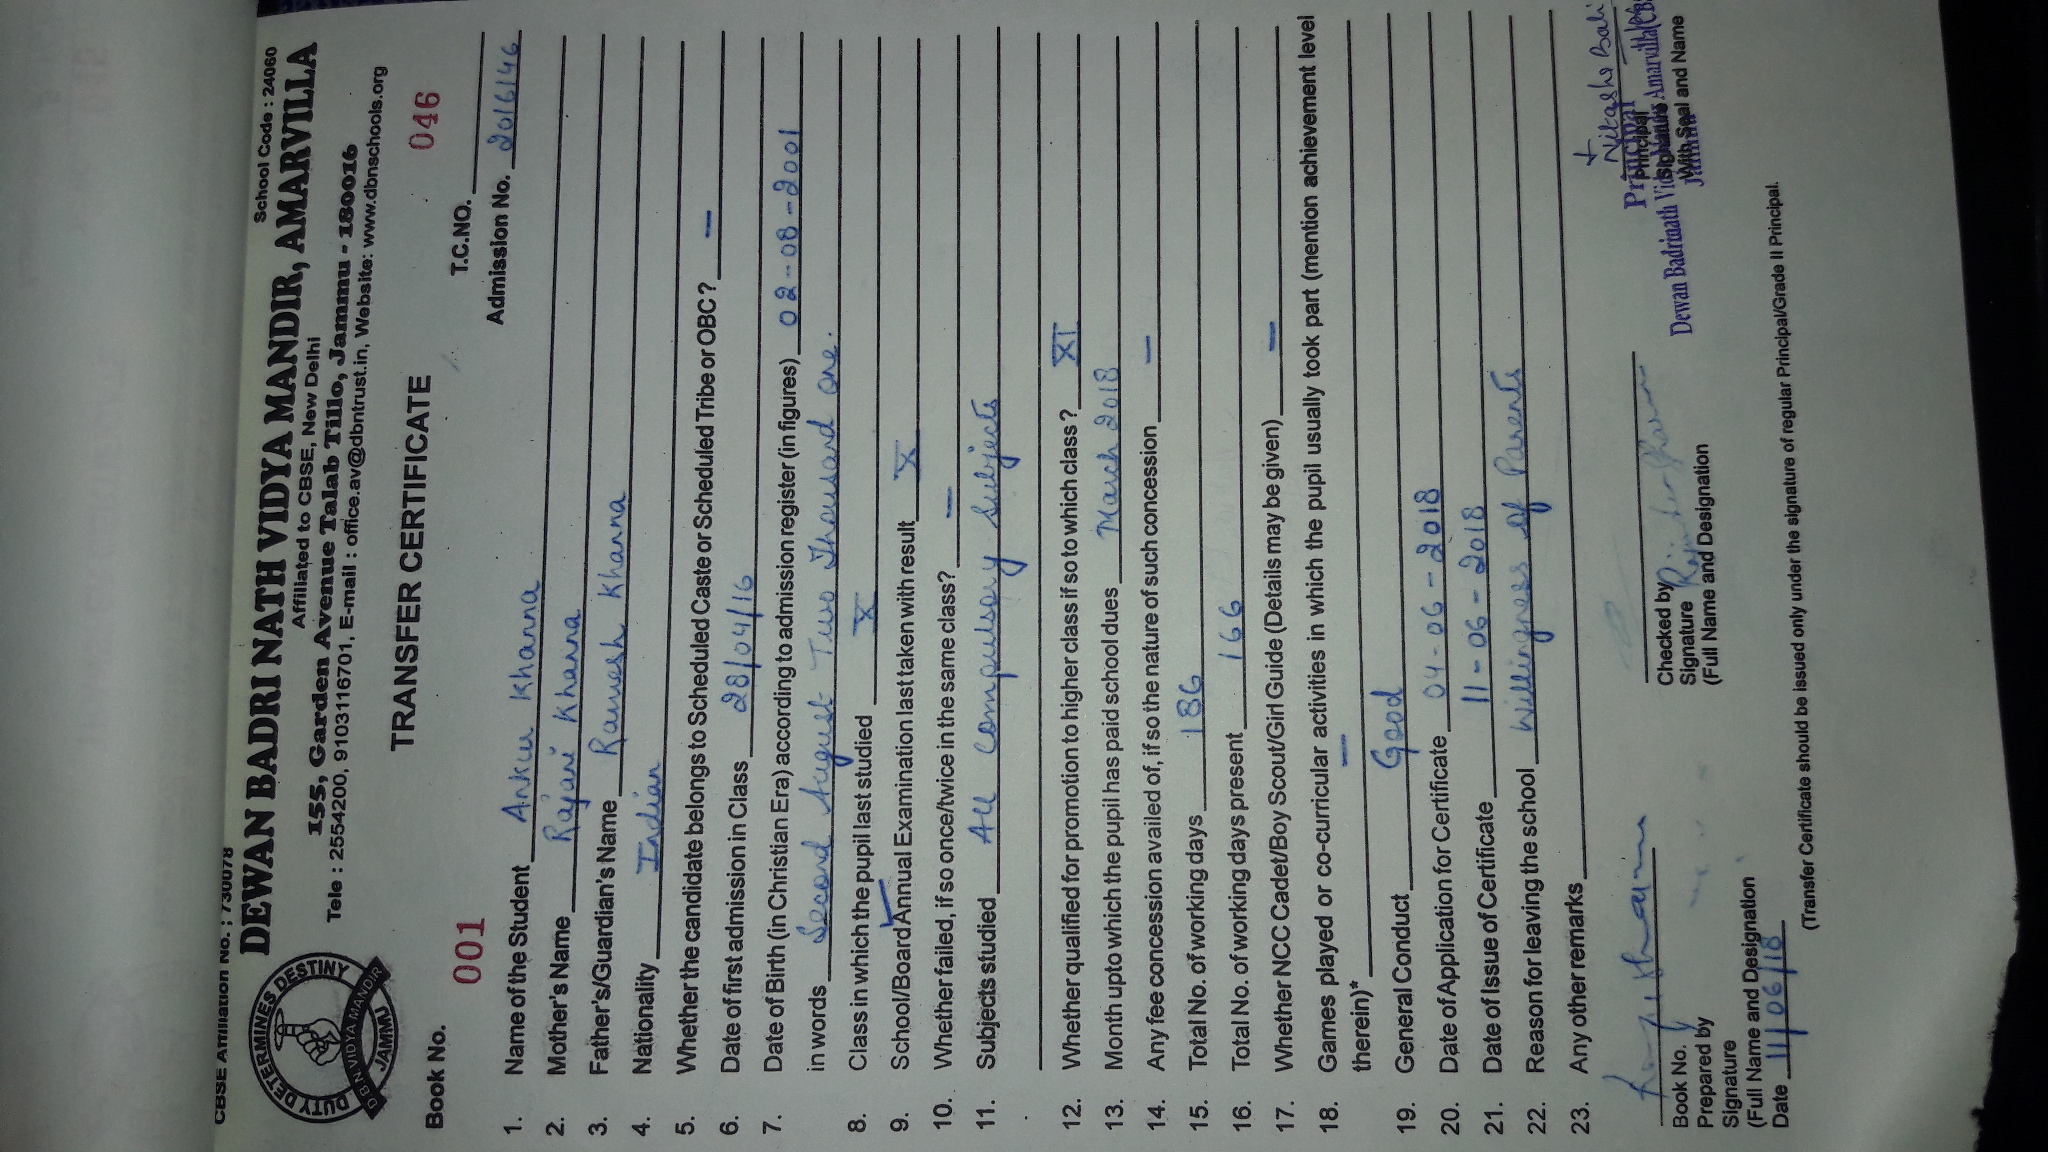 CBSE Affiliation No. : 730078 School Code : 24060
DEWAN BADRI NATH VIDYA MANDIR, AMARVILLA
Affiliated to CBSE, New Delhi
155, Garden Avenue Talab Tillo, Jammu - 180016
Tele : 2554200, 9103116701, E-mail : office.av@dbntrust.in, Website: www.dbnschools.org
DUTY DETERMINES DESTINY
D B N VIDYA MANDIR
JAMMU
TRANSFER CERTIFICATE
Book No. 001 T.C.NO. 046
Admission No. 2016146
1. Name of the Student Anku Khanna
2. Mother's Name Rajani Khanna
3. Father's/Guardian's Name Ramesh Khanna
4. Nationality Indian
5. Whether the candidate belongs to Scheduled Caste or Scheduled Tribe or OBC? —
6. Date of first admission in Class 28/04/16
7. Date of Birth (in Christian Era) according to admission register (in figures) 02-08-2001
in words Second August Two Thousand one.
8. Class in which the pupil last studied X
9. School/Board/Annual Examination last taken with result X
10. Whether failed, if so once/twice in the same class? —
11. Subjects studied All Compulsory Subjects
12. Whether qualified for promotion to higher class if so to which class? XI
13. Month upto which the pupil has paid school dues March 2018
14. Any fee concession availed of, if so the nature of such concession —
15. Total No. of working days 186
16. Total No. of working days present 166
17. Whether NCC Cadet/Boy Scout/Girl Guide (Details may be given) —
18. Games played or co-curricular activities in which the pupil usually took part (mention achievement level
therein)* —
19. General Conduct Good
20. Date of Application for Certificate 04-06-2018
21. Date of Issue of Certificate 11-06-2018
22. Reason for leaving the school Willingness of Parents
23. Any other remarks
Nitasha Bali
Book No.
Prepared by
Signature
(Full Name and Designation
Date 11/06/18
Checked by
Signature
(Full Name and Designation
Principal
Dewan Badrinath Vidya Mandir Amarvilla
Jammu
Principal
Signature
With Seal and Name
(Transfer Certificate should be issued only under the signature of regular Principal/Grade II Principal.